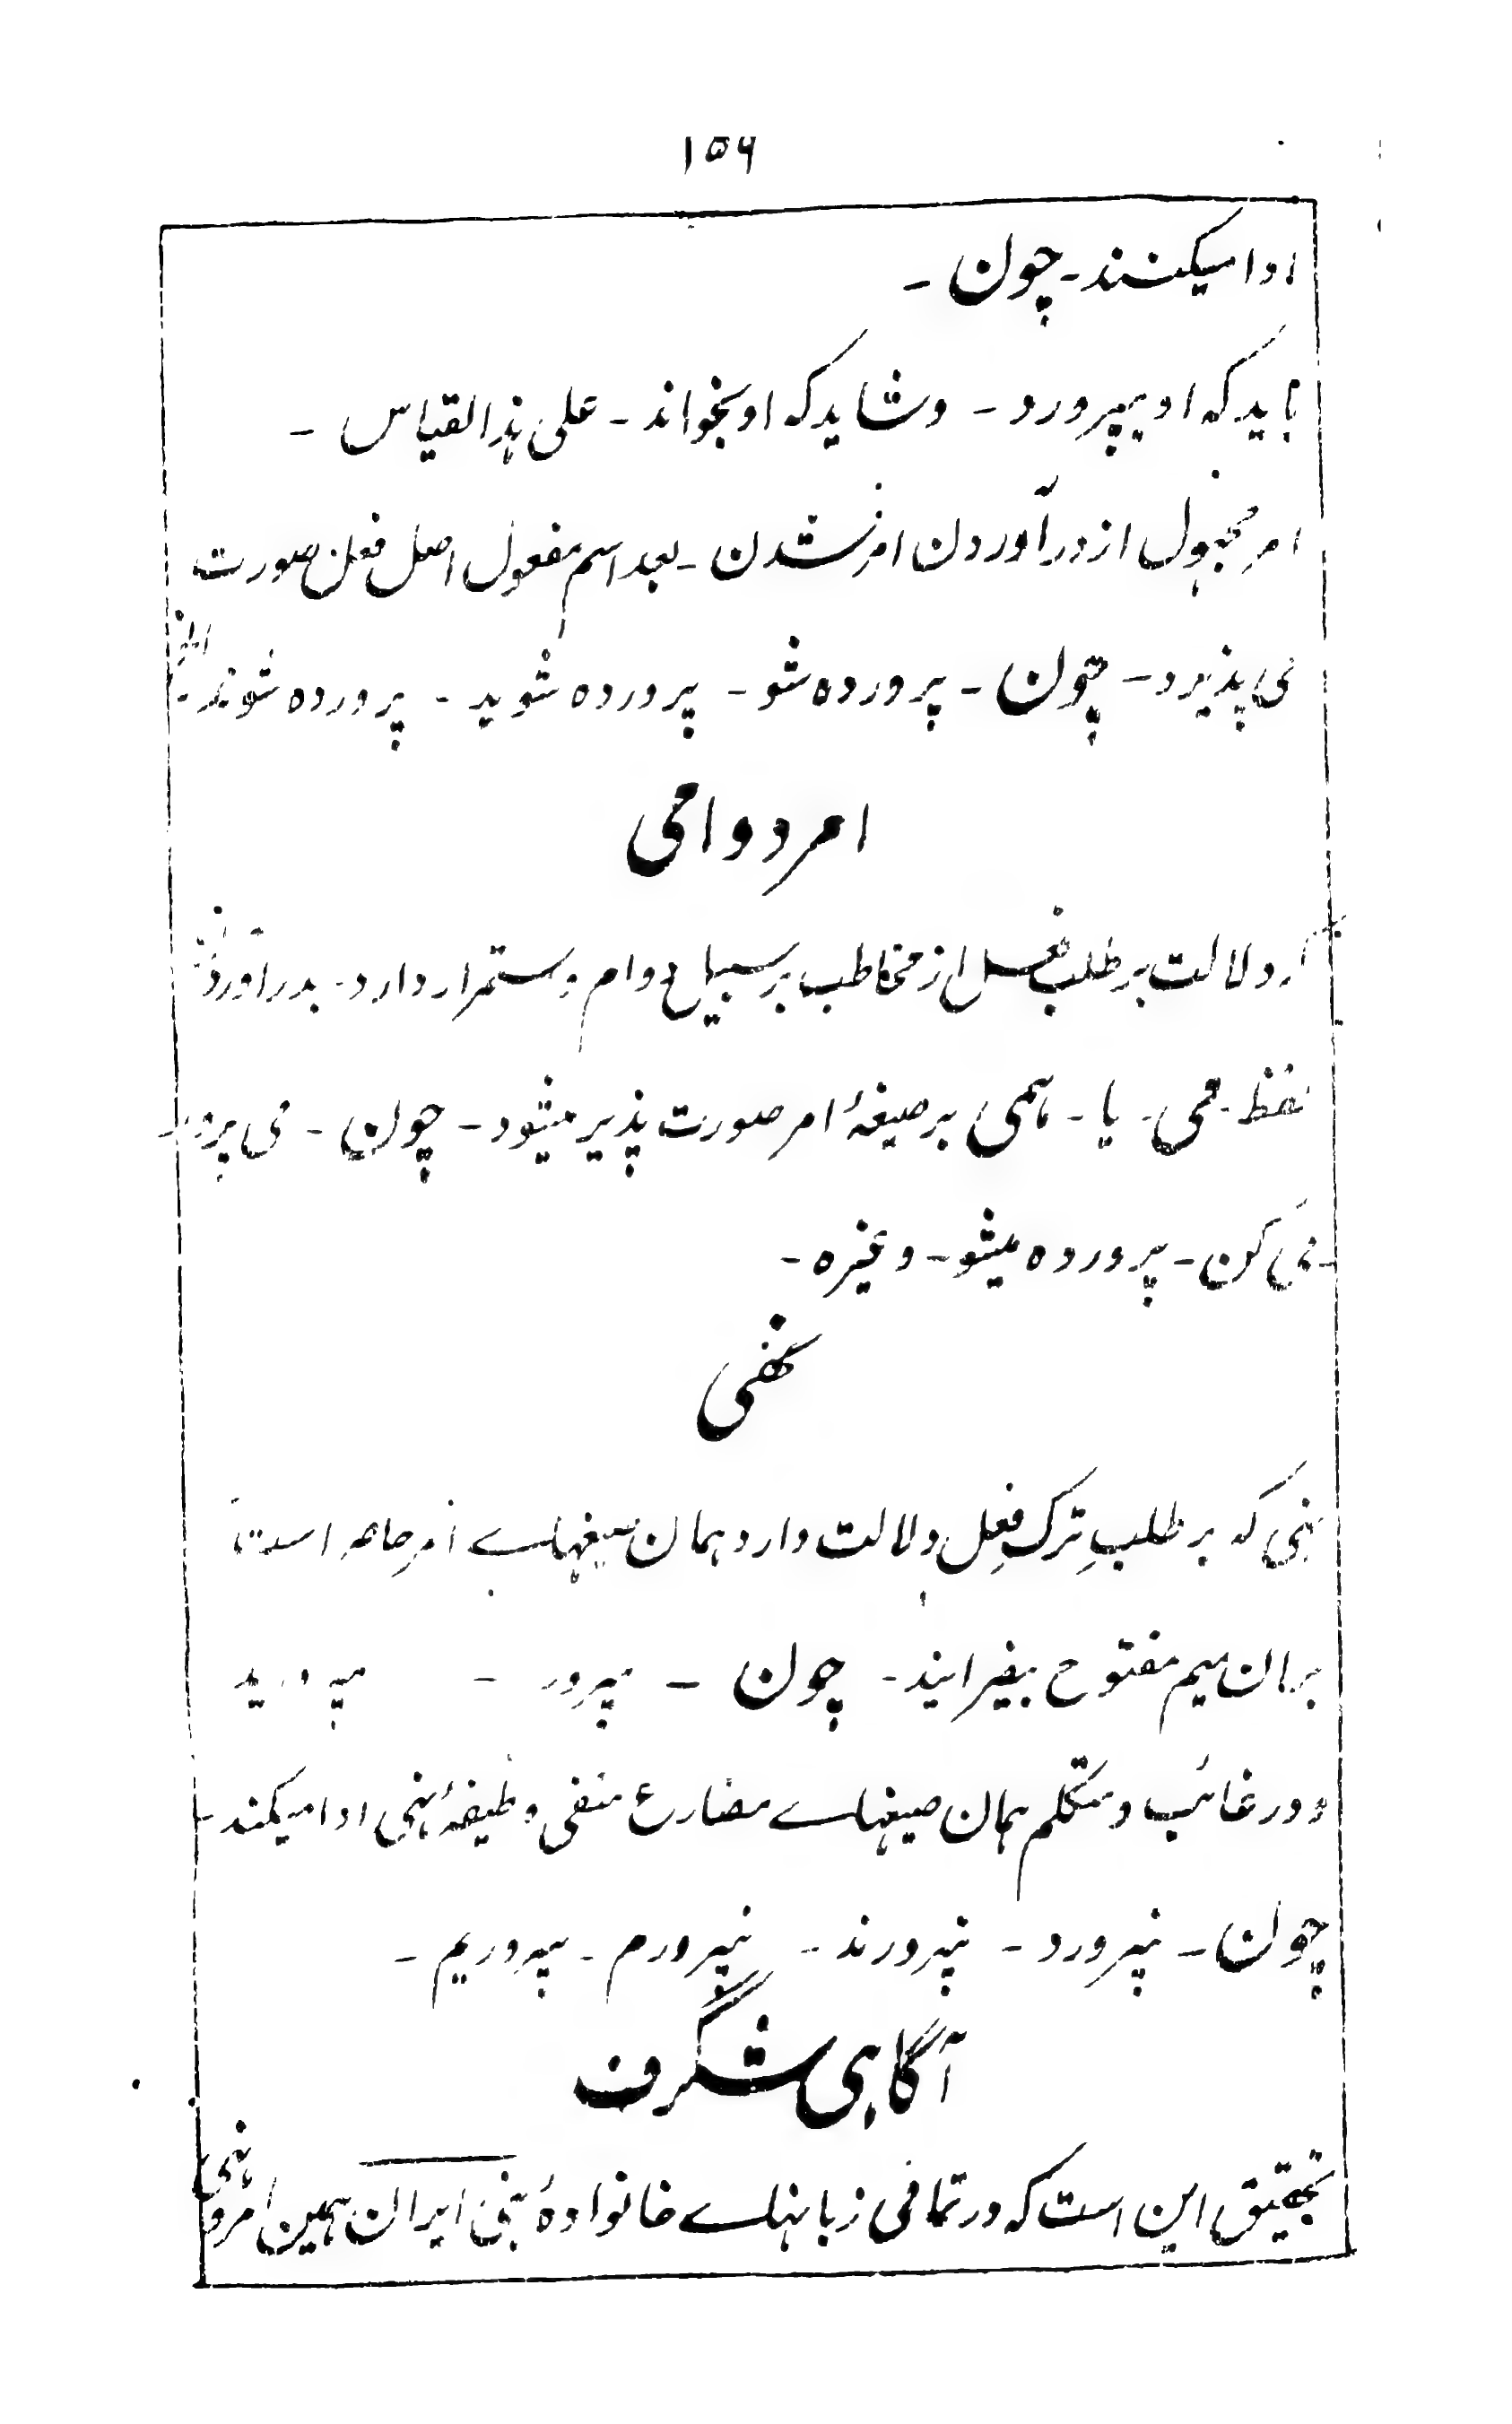 ۱۵۶
ادا میکنند - چون -
باید که او بپرورد - و شاید که او بخواند - علی هذا القیاس -
امرِ مجهول از در آوردن امرِ شدن - بعد اسم مفعول اصل فعل صورت
می پذیرد - چون - پرورده شو - پرورده شوید - پرورده شوند - الخ
امر دوامی
که دلالت بر طلب فعل از مخاطب بر سبیل دوام و استمرار دارد - بدر آوردن
لفظ - می - یا - همی بر صیغهٔ امر صورت پذیر میشود - چون - می پرور -
می کن - پرورده میشو - وغیره -
نهی
نهی که بر طلبِ ترکِ فعل دلالت دارد همان صیغهاے امرِ حاضر است
بر آن میم مفتوح بیفزایند - چون - مپرور - مپرورید
و در غائب و متکلم همان صیغهاے مضارع منفی وظیفهٔ نهی ادا میکند -
چون - نپرورد - نپرورند - نپرورم - نپروریم -
آگاهی شگرف
تحقیق این است که در تمامی زبانهاے خانوادهٔ بنی ایران همین امر و نهی